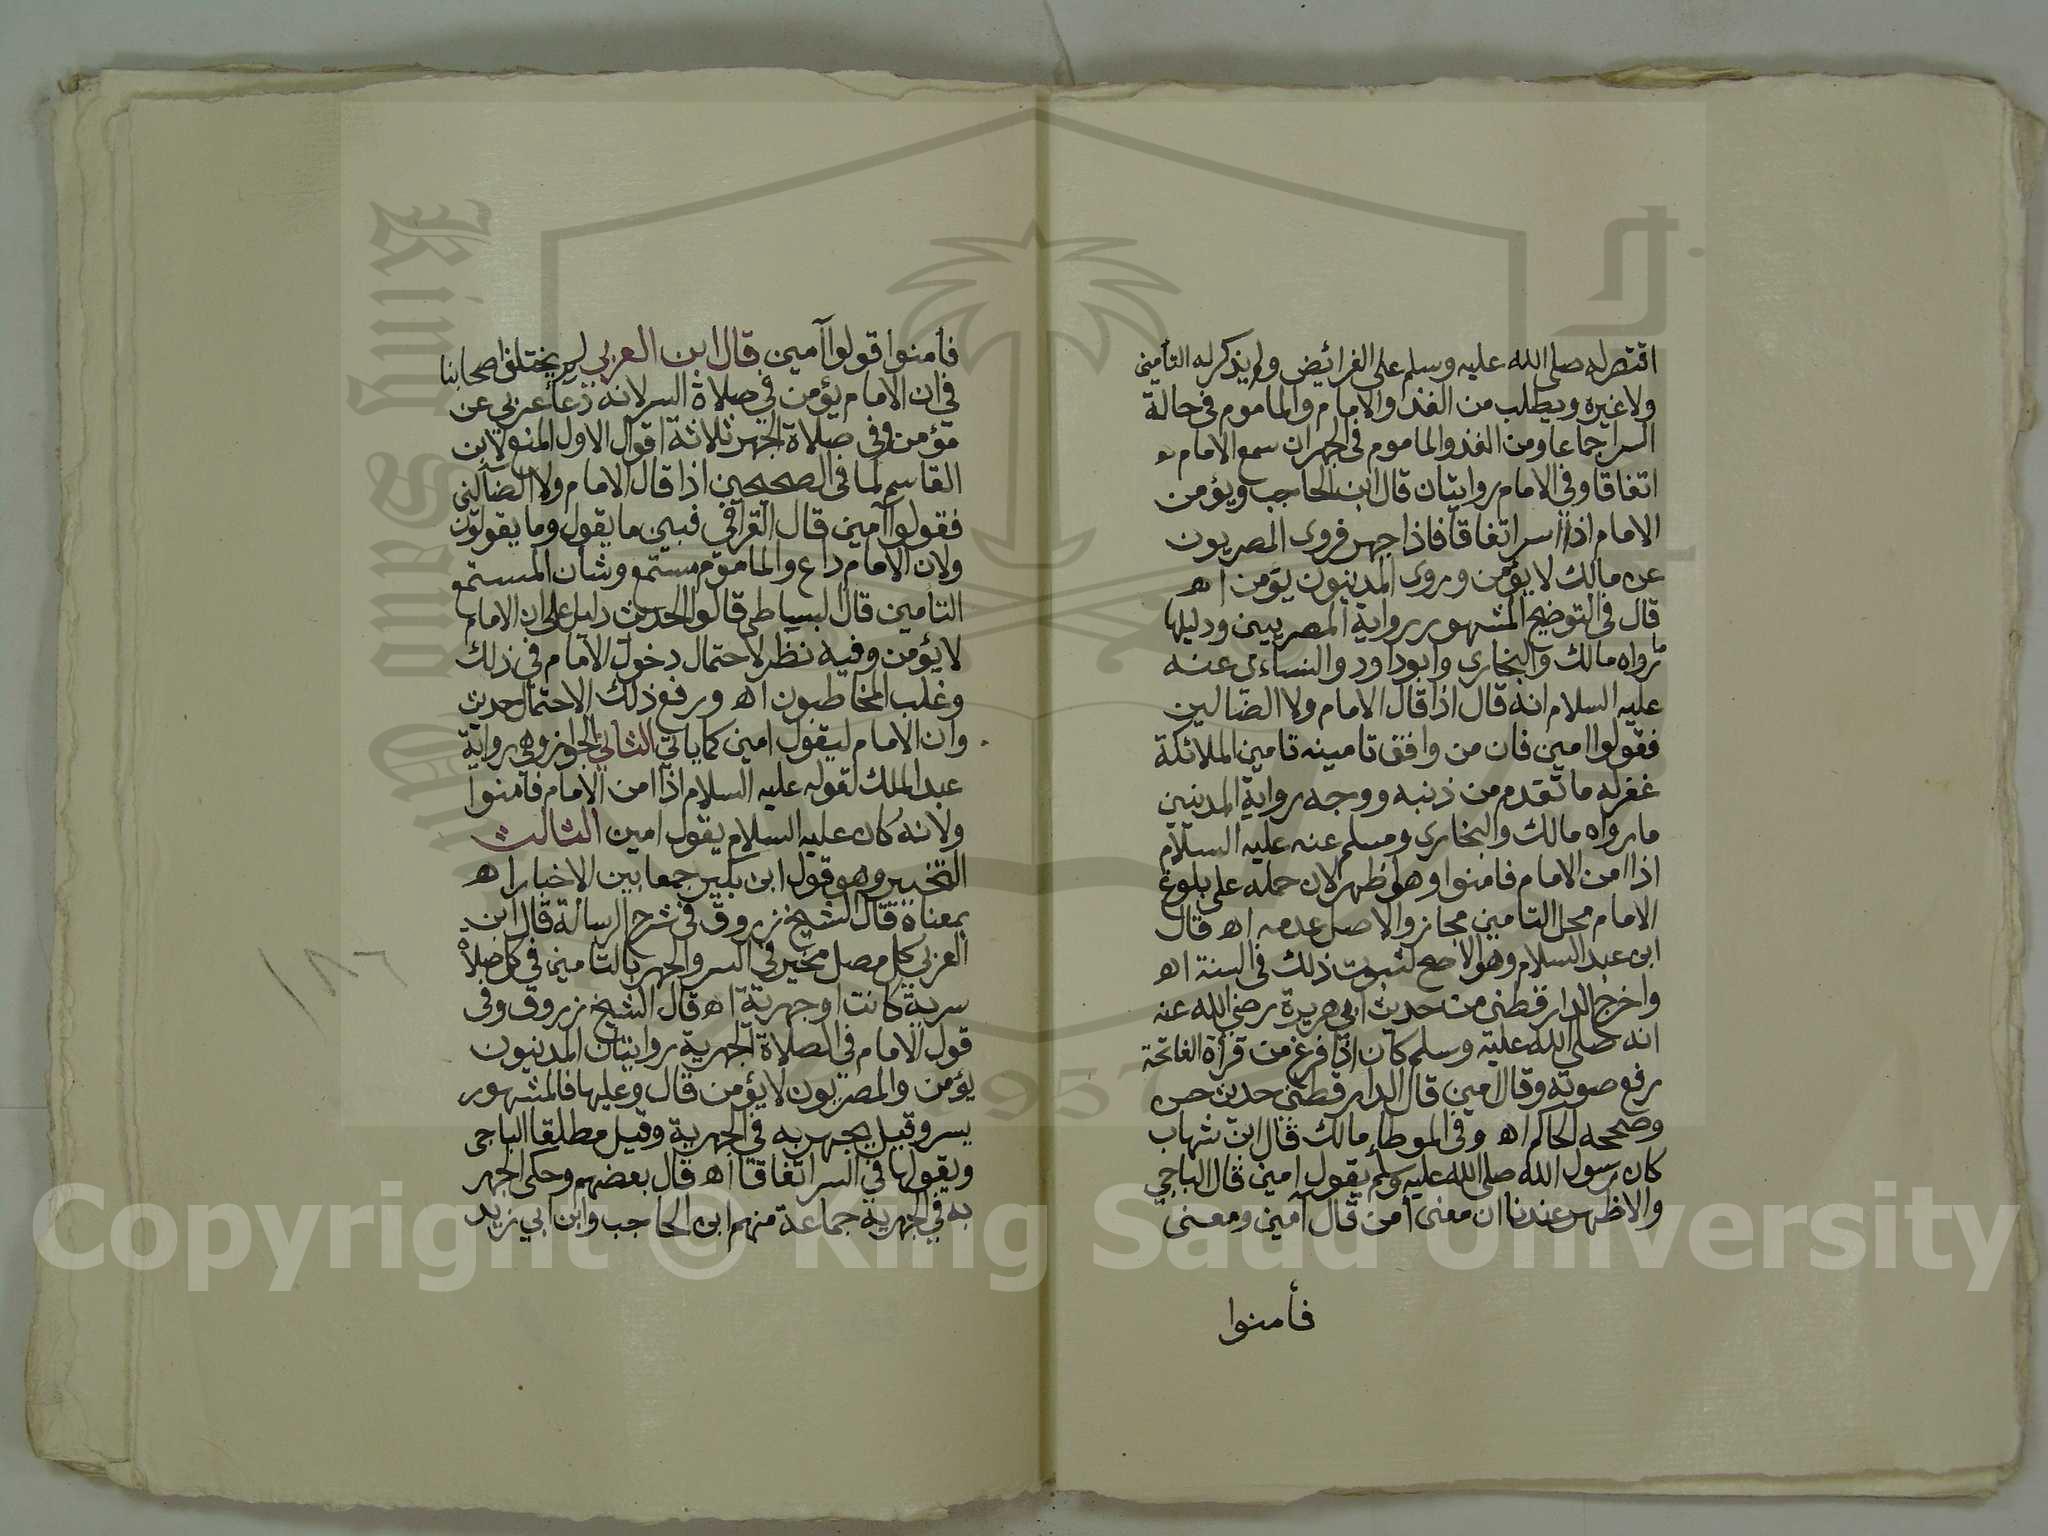 اقتصر له صلى الله عليه وسلم على الفرائض ولم يذكر له التأمين
ولا غيره ويطلب من الفذ والامام والماموم في حالة
السر اجماعا ومن الفذ والماموم في الجهر ان سمع الامام
اتفاقا وفي الامام روايتان قال ابن الحاجب ويؤمن
الامام اذا اسر اتفاقا فاذا جهر فروى المصريون
عن مالك لا يؤمن وروى المدنيون يؤمن اه
قال في التوضيح المشهور رواية المصريين ودليلها
ما رواه مالك والبخاري وابو داود والنساءى عنه
عليه السلام انه قال اذا قال الامام ولا الضالين
فقولوا امين فان من وافق تامينه تامين الملائكة
غفر له ما تقدم من ذنبه ووجه رواية المدنيين
ما رواه مالك والبخاري ومسلم عنه عليه السلام
اذا امن الامام فامنوا وهو اظهر لان حمله على بلوغ
الامام محل التامين مجاز والاصل عدمه اه قال
ابن عبد السلام وهو الاصح لثبوت ذلك في السنة اه
واخرج الدارقطني من حديث ابي هريرة رضي الله عنه
انه صلى الله عليه وسلم كان اذا فرغ من قرأة الفاتحة
رفع صوته وقال امين قال الدارقطني حديث حسن
وصححه الحاكم اه وفي الموطأ مالك قال ابن شهاب
كان رسول الله صلى الله عليه وسلم يقول امين قال الباجي
والاظهر عندنا ان معنى أمن قال آمين ومعنى
فأمنوا
فأمنوا قولوا آمين قال ابن العربي لم يختلف اصحابنا
في ان الامام يؤمن في صلاة السر لانه دعأ عري عن
مؤمن وفي صلاة الجهر ثلاثة اقوال الاول المنع لابن
القاسم لما في الصحيحين اذا قال الامام ولا الضآلين
فقولوا آمين قال القرافي فبين ما يقول وما يقولون
ولان الامام داع والماموم مستمع وشان المستمع
التامين قال البساطي قالوا الحديث دليل على ان الامام
لا يؤمن وفيه نظر لاحتمال دخول الامام في ذلك
وغلب المخاطبون اه ورفع ذلك الاحتمال حديث
وان الامام ليقول امين كما ياتي الثاني الجواز وهي رواية
عبد الملك لقوله عليه السلام اذا امن الامام فأمنوا
ولانه كان عليه السلام يقول امين الثالث
التخيير وهو قول ابن بكير جمعا بين الاخبار اه
بمعناه قال الشيخ زروق في شرح الرسالة قال ابن
العربي كل مصل مخير في السر والجهر بالتامين في كل صلاة
سرية كانت او جهرية اه قال الشيخ زروق وفى
قول الامام في الصلاة الجهرية روايتان المدنيون
يؤمن والمصريون لا يؤمن قال وعليها فالمشهور
يسر وقيل يجهر به في الجهرية وقيل مطلقا الباجي
ويقولها في السر اتفاقا اه قال بعضهم وحكى الجهر
به في الجهرية جماعة منهم ابن الحاجب وابن ابي زيد
١٨٦
Copyright © King Saud University
King Saud
1957